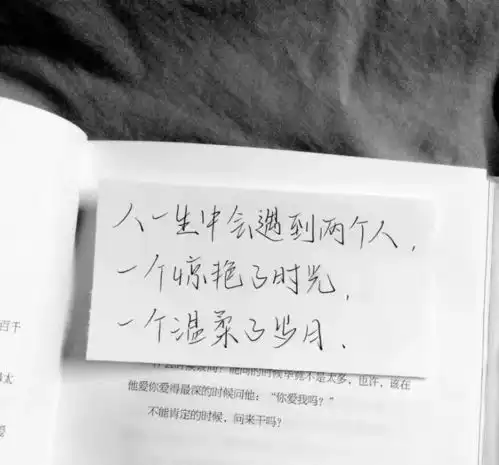 人一生中会遇到两个人，
一个惊艳了时光，
一个温柔了岁月．
百千
太
爱
能问的时候毕竟不是太多，也许，该在
他爱你爱得最深的时候问他：“你爱我吗？”
不能肯定的时候，问来干吗？